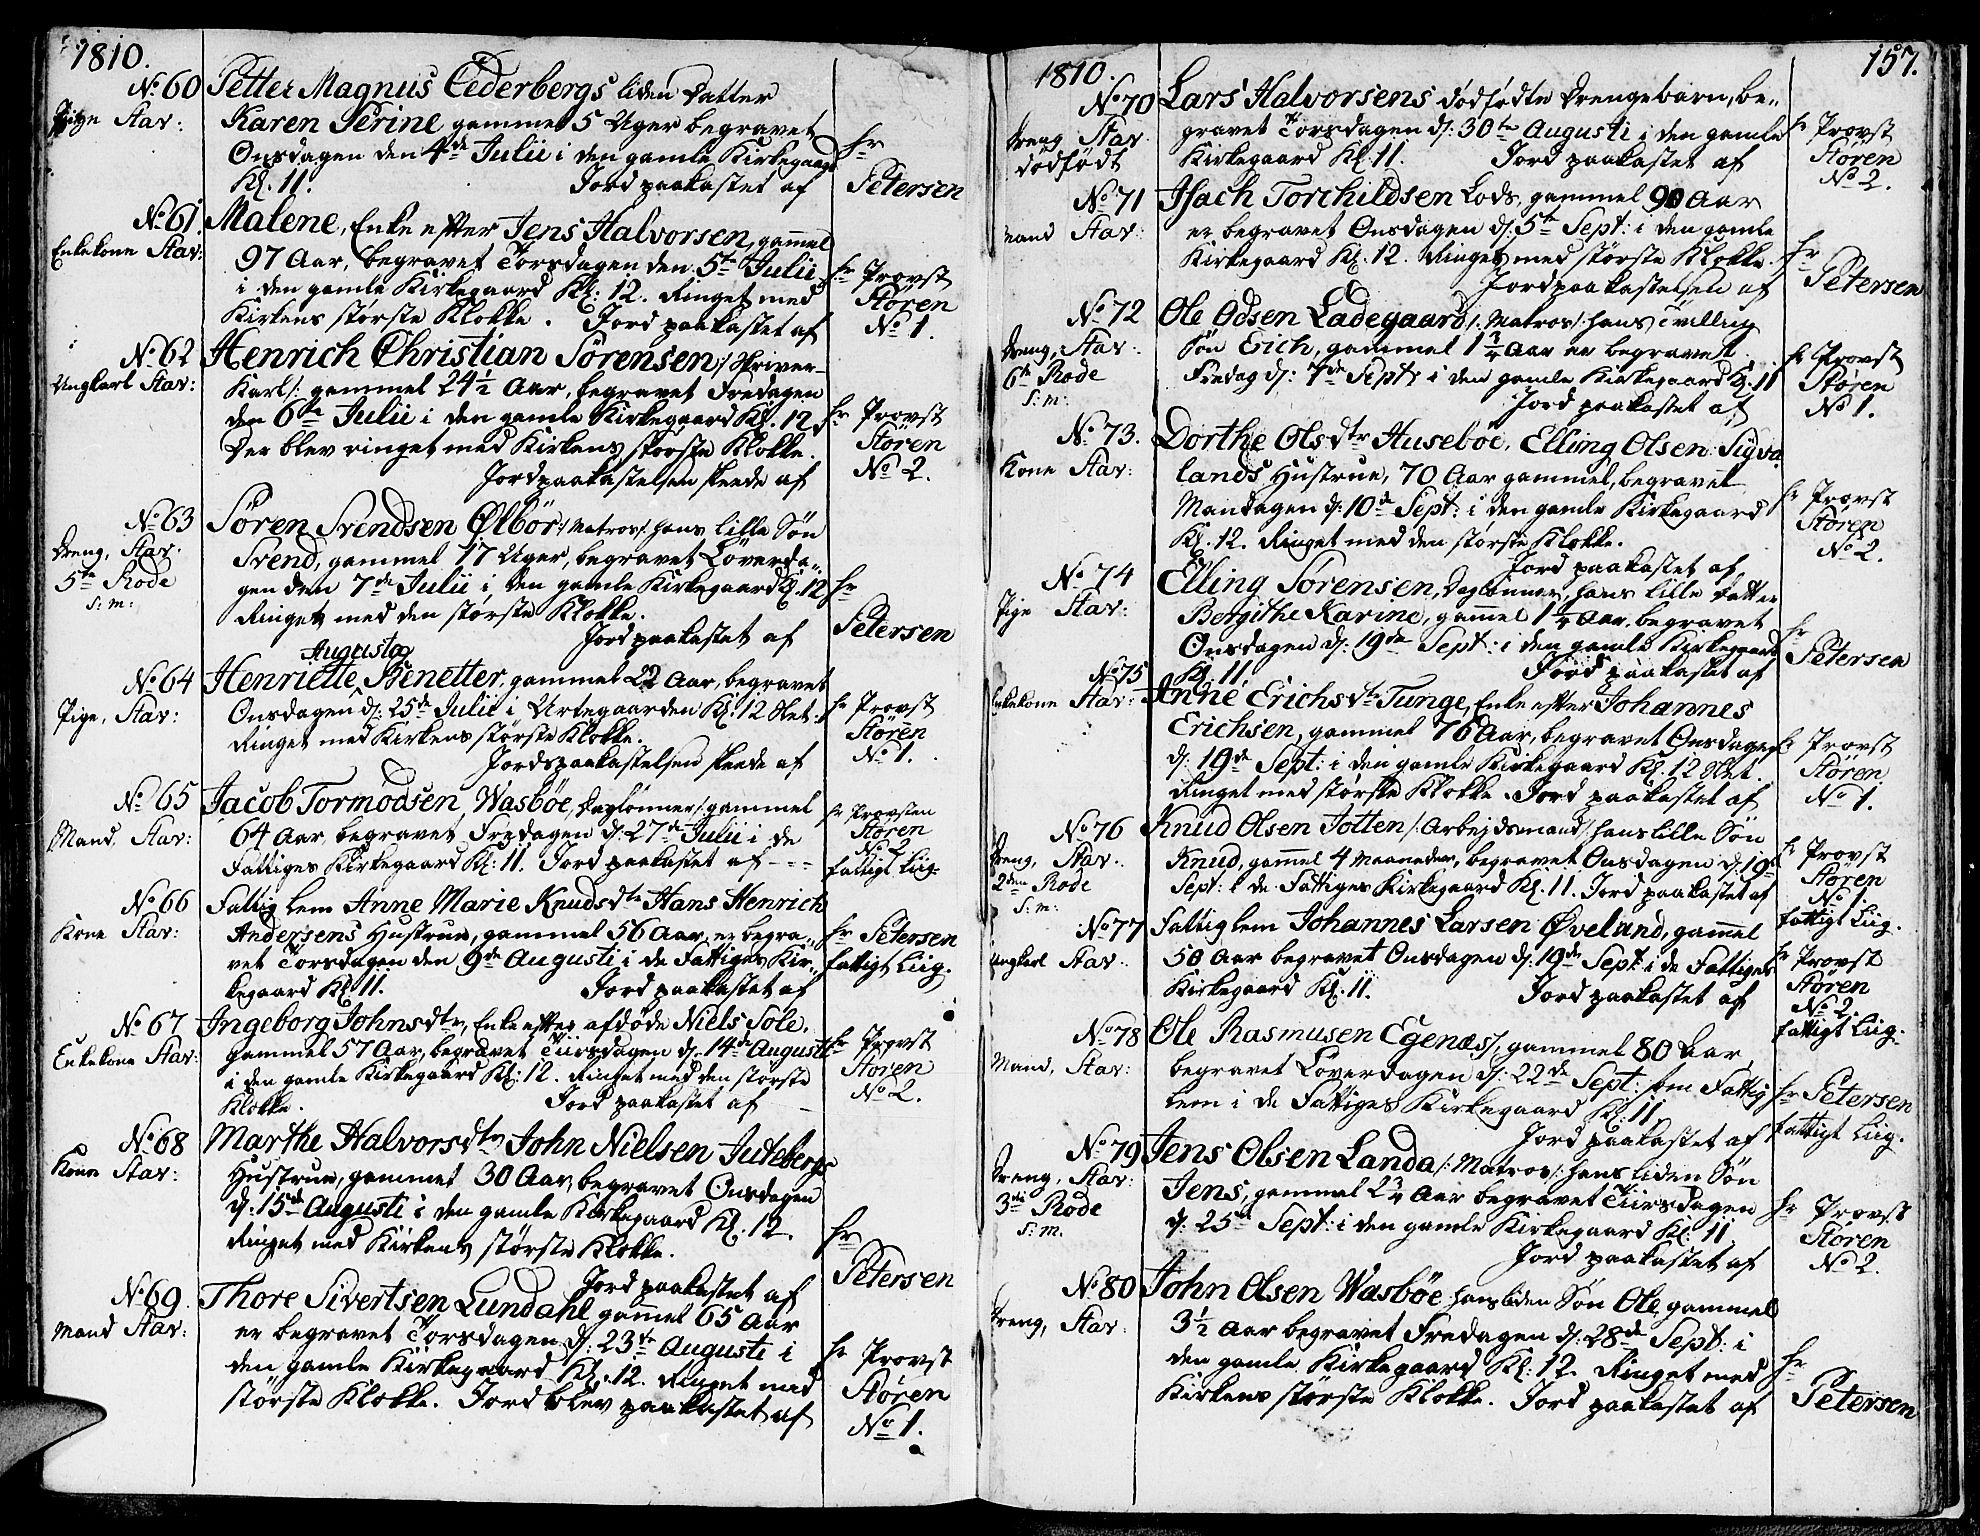 1810.
No. 60 Petter Magnus Cederbergs liden Datter
Pige Stav: Karen Perine gammel 5 Uger begravet
Onsdagen den 4de Julii i den gamle Kirkegaard hr
Kl. 11. Jord paakastet af Petersen
No. 61. Malene, Enke efter Jens Halvorsen, gam̄el
Enkekone Stav: 97 Aar, begravet Torsdagen den 5te Julii hr Provst
i den gamle Kirkegaard Kl: 12. Ringet med Stören
Kirkens störste Klokke. Jord paakastet af No 1.
No. 62 Henrich Christian Sörensen /: Skriver-
Ungkarl Stav: Karl /: gammel 24½ Aar, begravet Fredagen
den 6te Julii i den gamle Kirkegaard Kl. 12. hr Provst
Der blev ringet med Kirkens störste Klokke. Stören
Jordpaakastelsen skeede af No 2.
No. 63 Sören Svendsen Ølbör /: Matros /: hans lille Sön
Dreng, Stav. Svend, gammel 17 Uger, begravet Löverda-
5te Rode gen den 7de Julii i den gamle Kirkegaard Kl. 12 hr
S: m: Ringet med den störste Klokke.
Jord paakastet af Petersen
Augusta
No. 64 Henriette Benetter, gammel 22 Aar, begravet
Pige, Stav: Onsdagen d: 25de Julii i Urtegaarden Kl: 12 Slet. hr Provst
Ringet med Kirkens störste Klokke. Stören
Jordspaakastelsen skeede af No 1.
No. 65 Jacob Tormodsen, Wasböe, Daglönner /: gammel hr Provsten
Mand, Stav: 64 Aar, begravet Fredagen d: 27de Julii i de Stören
No 2
Fattiges Kirkegaard Kl: 11. Jord paakastet af - - - fattigt Liig.
No. 66 Fattig Lem Anne Marie Knudsdtr Hans Henrich
Kone Stav: Andersens Hustrue, gammel 56 Aar, er begra- hr Petersen
vet Torsdagen den 9de Augusti i de Fattiges Kir- fattigt Liig.
kegaard Kl 11. Jord paakastet af
No. 67 Ingeborg Johnsdtr, Enke efter afdöde Niels Sole,
Enkekone Stav: gammel 57 Aar, begravet Tiirsdagen d. 14de Augusti hr Provst
i den gamle Kirkegaard Kl: 12. Ringet med den störste Stören
Klokke. Jord paakastet af No 2.
No. 68 Marthe Halvorsdtr John Nielsen Juteberg
Kone Stav: Hustrue, gammel 30 Aar, begravet Onsdagen
d: 15de Augusti i den gamle Kirkegaard Kl. 12. hr
Ringet med Kirkens störste Klokke.
Jord paakastet af Petersen
No. 69. Thore Sivertsen Lundahl gam̄el 65 Aar
Mand Stav: er begravet Torsdagen d: 23de Augusti i hr Provst
den gamle Kirkegaard Kl: 12. Ringet med Stören
störste Klokke. Jord blev paakastet af No 1.
1810. 157.
No 70 Lars Halvorsens dödfödte Drengebarn, be-
Dreng Stav. gravet Torsdagen d: 30te Augusti i den gamle hr Provst
dödfödt Kirkegaard Kl. 11. Jord paakastet af Stören
No 2.
No 71 Isach Torchildsen Lods, gammel 90 Aar
Mand Stav: er begravet Onsdagen d: 5te Sept: i den gamle
Kirkegaard Kl: 12. Ringet med störste Klokke. hr
Jordpaakastelsen af Petersen
No 72 Ole Odsen Ladegaard /: Matros /: hans Tvilling
Dreng, Stav: Sön Erich, gammel 1¾ Aar er begravet hr Provst
6te Rode Fredag d: 7de Sept: i den gamle Kirkegaard Kl. 11 Stören
S: m: Jord paakastet af No 1.
No. 73. Dorthe Olsdtr Huseböe, Elling Olsen Sigva-
Kone Stav: lands Hustrue, 70 Aar gammel, begravet hr Provst
Mandagen d: 10de Sept: i den gamle Kirkegaard Stören
Kl. 12. Ringet med den störste Klokke. No 2.
Jord paakastet af
No. 74 Elling Sörensen, Daglönner, hans lille Datter
Pige Stav: Bergithe Karine, gam̄el 1¼ Aar, begravet hr
Onsdagen d: 19de Sept: i den gamle Kirkegaard Petersen
Kl. 11. Jord paakastet af
No. 75 Anne Erichsdtr Tunge, Enke efter Johannes
Enkekone Stav: Erichsen, gammel 76 Aar, begravet Onsdagen hr Provst
d: 19de Sept: i den gamle Kirkegaard Kl. 12 Slet. Stören
Ringet med störste Klokke. Jord paakastet af No 1.
No. 76 Knud Olsen Jotten /: Arbejdsmand /: hans lille Sön
Dreng, Stav: Knud, gam̄el 4 Maaneder, begravet Onsdagen d: 19de hr Provst
2den Rode Sept: i de Fattiges Kirkegaard Kl. 11. Jord paakastet af Stören
S: m: No 1
No. 77 Fattiglem Johannes Larsen Øveland, gam̄el fattigt Liig.
Ungkarl Stav. 50 Aar begravet Onsdagen d: 19de Sept i de Fattiges hr Provst
Kirkegaard Kl. 11. Jord paakastet af Stören
No 2.
No. 78 Ole Rasmusen Egenæs /, gammel 80 Aar fattigt Liig.
Mand, Stav: begravet Löverdagen d: 22de Sept: som Fattig hr Petersen
Lem i de Fattiges Kirkegaard Kl. 11. fattigt Liig.
Jord paakastet af
No. 79 Jens Olsen Landa /: Matros /: hans liden Sön
Dreng, Stav: Jens, gammel 2¾ Aar begravet Tiirsdagen hr Provst
3die Rode d: 25de Sept: i den gamle Kirkegaard Kl: 11 Stören
S: m. Jord paakastet af No 2.
No. 80 John Olsen Wasböe hans liden Sön Ole gammel
Dreng, Stav: 3½ Aar begravet Fredagen d: 28de Sept: i
den gamle Kirkegaard Kl: 12. Ringet med hr
Kirkens störste Klokke. Jord paakastet af Petersen